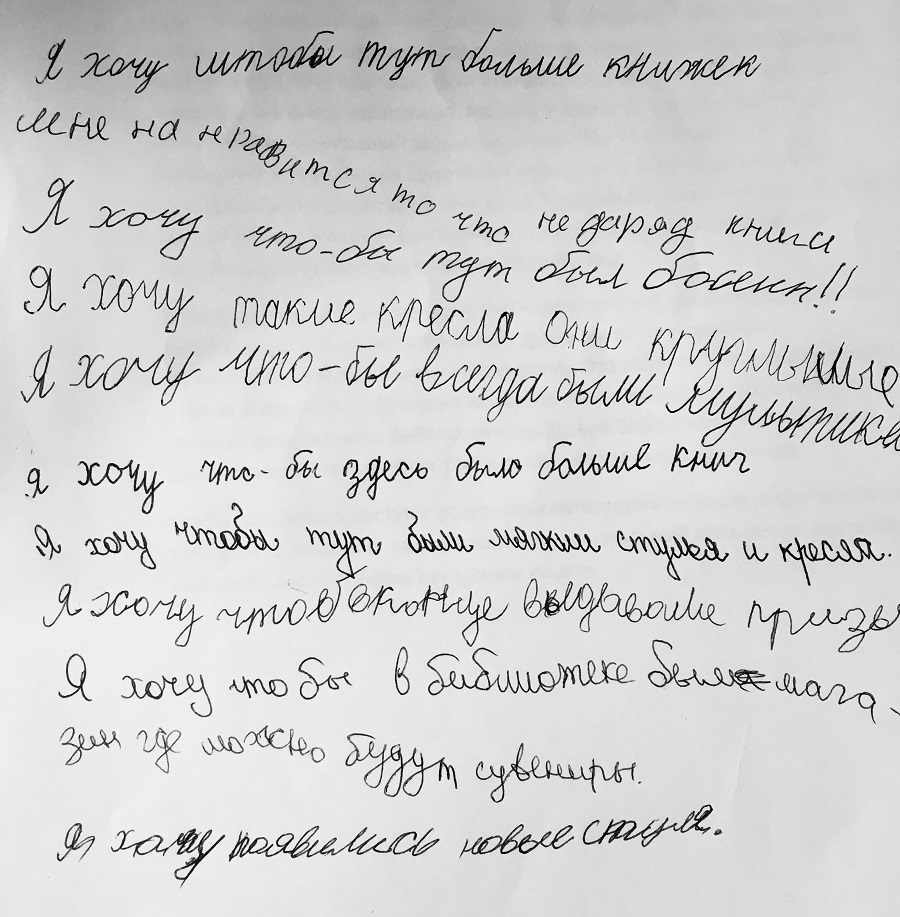 Я хочу штобы тут больше книжек
мне на нравится то что не даряд книги
Я хочу что-бы тут был басеин!!
Я хочу такие кресла они круглыые
Я хочу что-бы всегда были мультики
я хочу что-бы здесь было больше книг
Я хочу чтобы тут были мягкии стулья и кресла.
Я хочу чтоб в конце выдавали призы
Я хочу что бы в библиотеке был мага-
зин где можно будут сувениры.
Я хочу появились новые стулья.